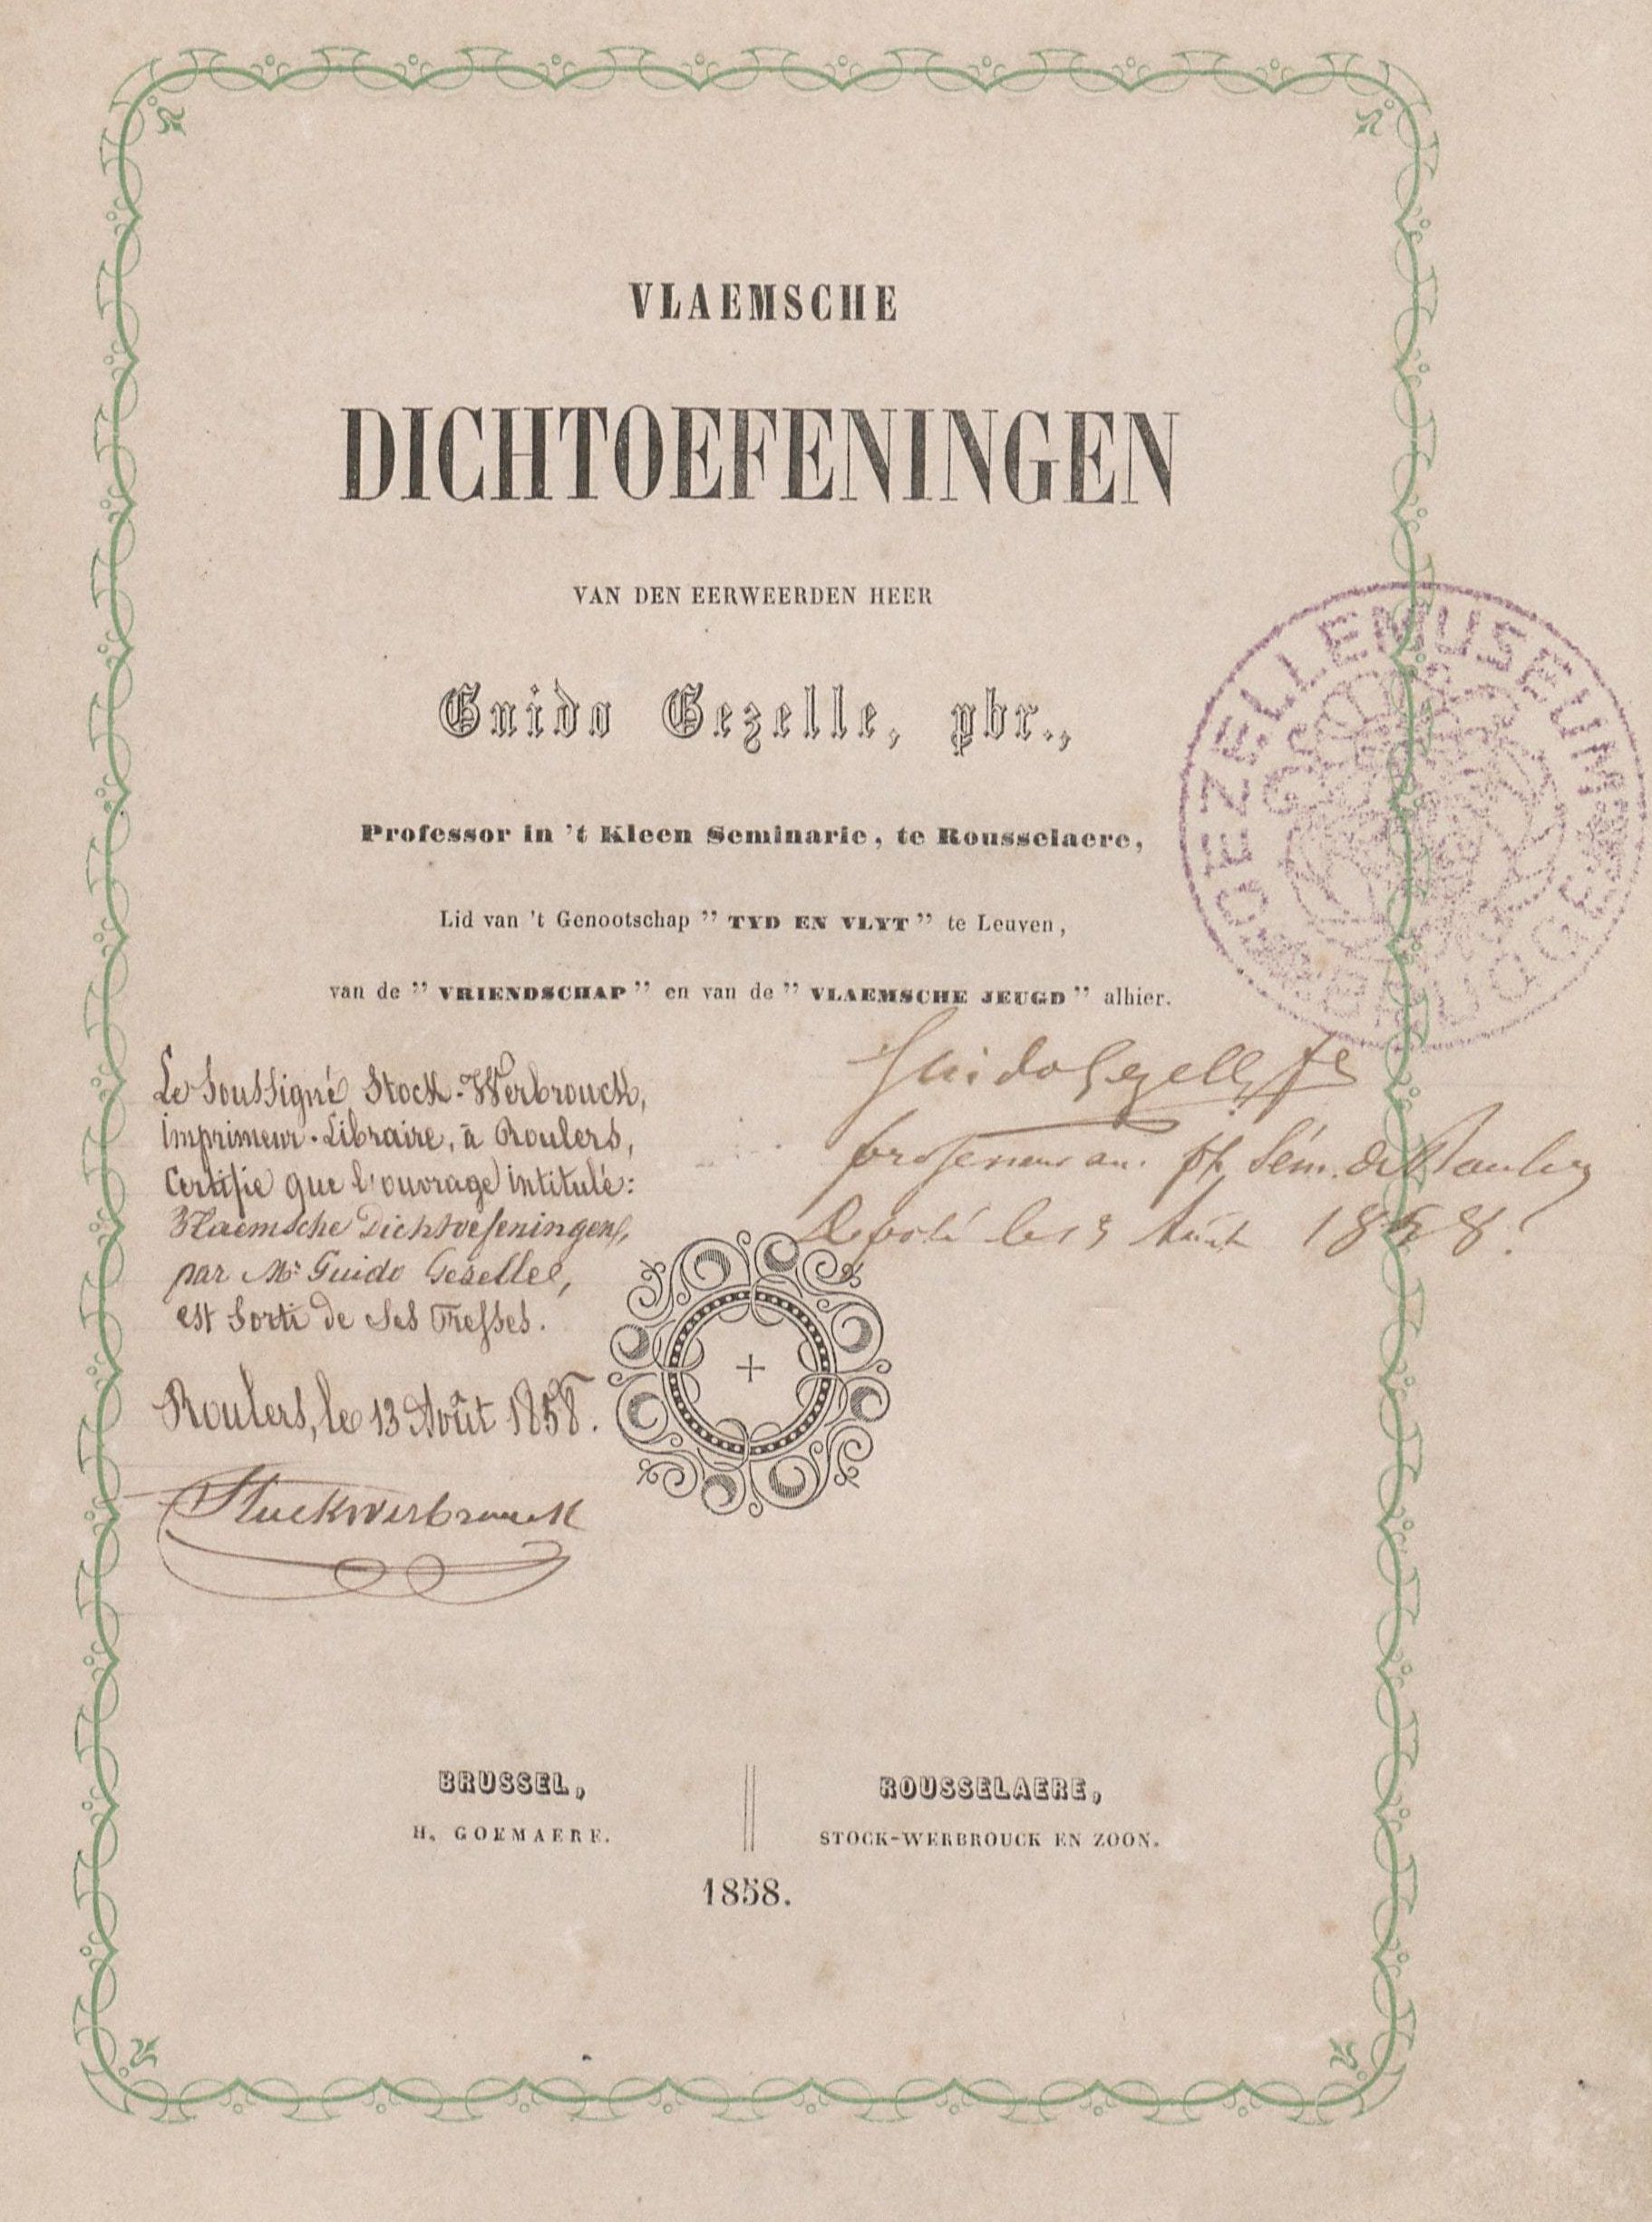 VLAEMSCHE
DICHTOEFENINGEN
VAN DEN EERWEERDEN HEER
Guido Gezelle, pbr.,
Professor in 't Kleen Seminarie, te Rousselaere,
Lid van 't Genootschap " TYD EN VLYT " te Leuven,
van de " VRIENDSCHAP " en van de " VLAEMSCHE JEUGD " alhier.
GUIDO GEZELLEMUSEUM
BRUGGE
Le Soussigné Stock-Werbrouck,
imprimeur-Libraire, à Roulers,
Certifie que l'ouvrage intitulé:
Vlaemsche Dichtoefeningen,
par Mr Guido Gezelle,
est Sorti de Ses Presses.
Roulers, le 13 Août 1858.
Stockwerbrouck
Guido Gezelle
professeur au pt Sém. de Roulers
Deposé le 13 Août 1858.
BRUSSEL,
H. GOEMAERE.
ROUSSELAERE,
STOCK-WERBROUCK EN ZOON.
1858.